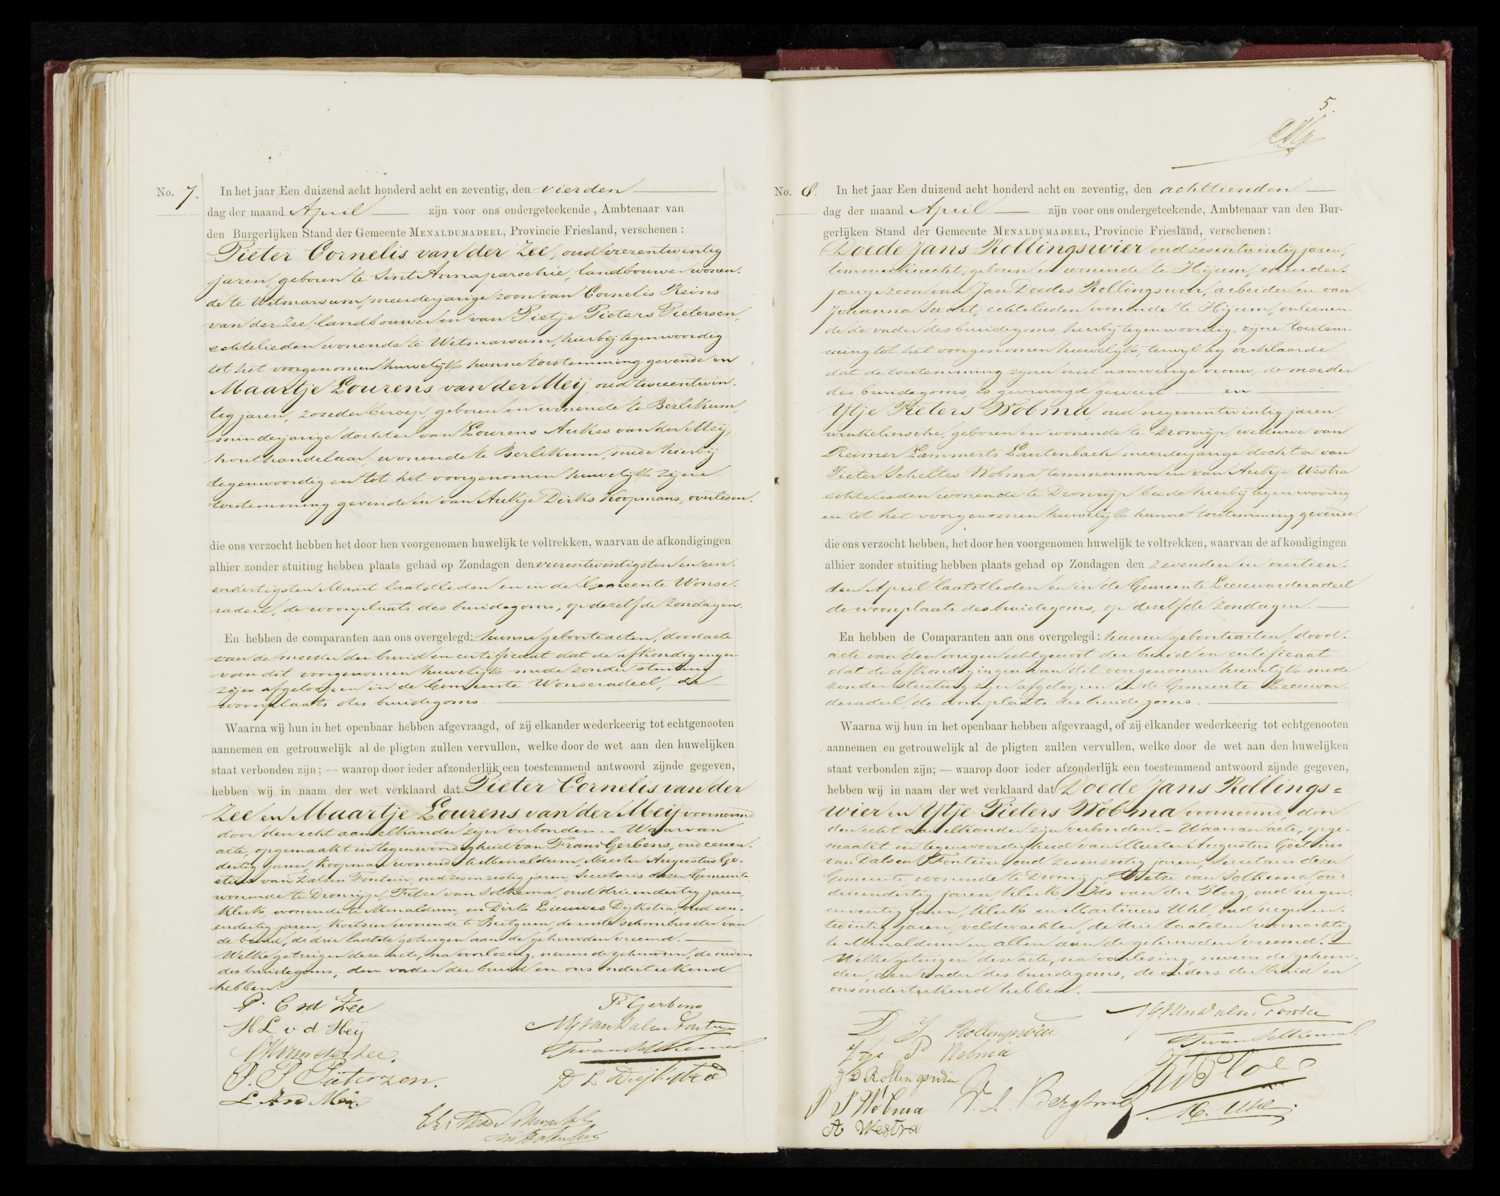 No. 7. In het jaar Een duizend acht honderd acht en zeventig, den vierden
dag der maand April zijn voor ons ondergeteekende, Ambtenaar van
den Burgerlijken Stand der Gemeente MENALDUMADEEL, Provincie Friesland, verschenen:
Pieter Cornelis van der Zee, oud vierentwintig
jaren, geboren te Sint Annaparochie, landbouwer wonen-
de te Witmarsum, meerderjarige zoon van Cornelis Reins
van der Zee, landbouwer en van Pietje Pieters Pietersen,
echtelieden wonende te Witmarsum, hierbij tegenwoordig
tot het voorgenomen huwelijk hunne toestemming gevende en
Maartje Lourens van der Meij oud tweeentwin-
tig jaren, zonder beroep, geboren en wonende te Berlikum,
minderjarige dochter van Lourens Aukes van der Meij,
houthandelaar, wonende te Berlikum, mede hierbij
tegenwoordig en tot het voorgenomen huwelijk zijne
toestemming gevende en van Aukje Dirks Koopmans, overleden.
die ons verzocht hebben het door hen voorgenomen huwelijk te voltrekken, waarvan de afkondigingen
alhier zonder stuiting hebben plaats gehad op Zondagen den vierentwintigsten en een-
endertigsten Maart laatstleden en in de Gemeente Wonse-
radeel, de woonplaats des bruidegoms, op dezelfde Zondagen.
En hebben de comparanten aan ons overgelegd: hunne geboorteacten, doodacte
van de moeder der bruid en certificaat dat de afkondigingen
van dit voorgenomen huwelijk mede zonder stuiting
zijn afgeloopen in de Gemeente Wonseradeel, de
woonplaats des bruidegoms.
Waarna wij hun in het openbaar hebben afgevraagd, of zij elkander wederkeerig tot echtgenooten
aannemen en getrouwelijk al de pligten zullen vervullen, welke door de wet aan den huwelijken
staat verbonden zijn; — waarop door ieder afzonderlijk een toestemmend antwoord zijnde gegeven,
hebben wij in naam der wet verklaard dat Pieter Cornelis van der
Zee en Maartje Lourens van der Meij voornoemd
door den echt aan elkander zijn verbonden. — Waarvan
acte, opgemaakt in tegenwoordigheid van Frans Gerbens, oud eenen-
dertig jaren, koopman wonende te Menaldum, Meester Augustus Ge-
van Dalsen Fontein, oud zesenzestig jaren, Secretaris dezer Gemeente
wonende te Dronrijp, Fetze van Solkema, oud drieendertig jaren,
klerk wonende te Menaldum, en Dirk Leeuwes Dijkstra, oud een-
endertig jaren, wonende te Beetgum, de eerste schoonbroeder van
de bruid, de drie laatste getuigen aan de gehuwden vreemd. —
Welke getuigen deze acte, na voorlezing, nevens de gehuwden, de ouders
des bruidegoms, den vader der bruid en ons onderteekend
hebben.
P. C vd Zee
M L v d Meij
C R van der Zee.
P. P Pietersen.
L A vd Meij
Fs Gerbens
AG van Dalsen Fontein
F van Solkema
D L Dijkstra
5.
No. 8. In het jaar Een duizend acht honderd acht en zeventig, den achttienden
dag der maand April zijn voor ons ondergeteekende, Ambtenaar van den Bur-
gerlijken Stand der Gemeente MENALDUMADEEL, Provincie Friesland, verschenen:
Doede Jans Rollingswier oud zesentwintig jaren,
timmerknecht, geboren en wonende te Hijum, meerder-
jarige zoon van Jan Doedes Rollingswier, arbeider en van
Johanna echtelieden wonende te Hijum,
de de vader des bruidegoms hierbij tegenwoordig, zijne toestem-
ming tot het voorgenomen huwelijk, terwijl hij verklaarde
dat de toestemming zijner niet aanwezige vrouw, de moeder
des bruidegoms, is gevraagd geworden — en
Ytje Pieters Wobma, oud negenentwintig jaren,
winkeliersche, geboren en wonende te Dronrijp, weduwe van
Reimer Lammerts Lautenbach meerderjarige dochter van
Pieter Scheltes Wobma timmerman en van Aukje Westra
echtelieden wonende te Dronrijp beide hierbij tegenwoordig
en tot het voorgenomen huwelijk hunne toestemming gevende
die ons verzocht hebben, het door hen voorgenomen huwelijk te voltrekken, waarvan de afkondigingen
alhier zonder stuiting hebben plaats gehad op Zondagen den zevenden en veertien-
den April laatstleden en in de Gemeente Leeuwarderadeel
de woonplaats des bruidegoms, op dezelfde Zondagen. —
En hebben de Comparanten aan ons overgelegd: hunne geboorteacten, dood-
acte van den vorigen echtgenoot der bruid en certificaat
dat de afkondigingen van dit voorgenomen huwelijk mede
zonder stuiting zijn afgeloopen in de Gemeente Leeuwar-
deradeel, de woonplaats des bruidegoms.
Waarna wij hun in het openbaar hebben afgevraagd, of zij elkander wederkeerig tot echtgenooten
aannemen en getrouwelijk al de pligten zullen vervullen, welke door de wet aan den huwelijken
staat verbonden zijn; — waarop door ieder afzonderlijk een toestemmend antwoord zijnde gegeven,
hebben wij in naam der wet verklaard dat Doede Jans Rollings=
wier en Ytje Pieters Wobma voornoemd, door
den echt aan elkander zijn verbonden. — Waarvan acte, opge-
maakt in tegenwoordigheid van Meester Augustus
van Dalsen Fontein oud zesenzestig jaren, Secretaris dezer
Gemeente wonende te Dronrijp, Fetze van Solkema oud
drieendertig jaren, klerk, van der Ploeg oud negen-
entwintig jaren, klerk en Martinus Uhl, oud negenen-
twintig jaren, veldwachter, de drie laatsten woonachtig
te Menaldum en allen aan de gehuwden vreemd. —
Welke getuigen deze acte, na voorlezing, nevens de gehuw-
den, den vader des bruidegoms, de ouders der bruid en
ons onderteekend hebben.
D J Rollingswier
Ytje P Wobma
J D Rollingswier
P S Wobma
A Westra
AG van Dalsen Fontein
F van Solkema
M. Uhl